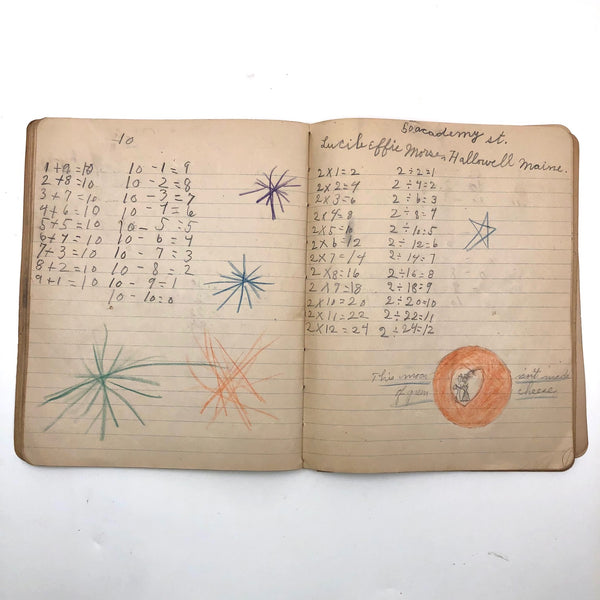 10
1+9=10 10-1=9
2+8=10 10-2=8
3+7=10 10-3=7
4+6=10 10-4=6
5+5=10 10-5=5
6+4=10 10-6=4
7+3=10 10-7=3
8+2=10 10-8=2
9+1=10 10-9=1
10-10=0
50 academy st.
Lucile Effie Morse, Hallowell Maine.
2×1=2 2÷2=1
2×2=4 2÷4=2
2×3=6 2÷6=3
2×4=8 2÷8=4
2×5=10 2÷10=5
2×6=12 2÷12=6
2×7=14 2÷14=7
2×8=16 2÷16=8
2×9=18 2÷18=9
2×10=20 2÷20=10
2×11=22 2÷22=11
2×12=24 2÷24=12
This moon isn't made
of green cheese